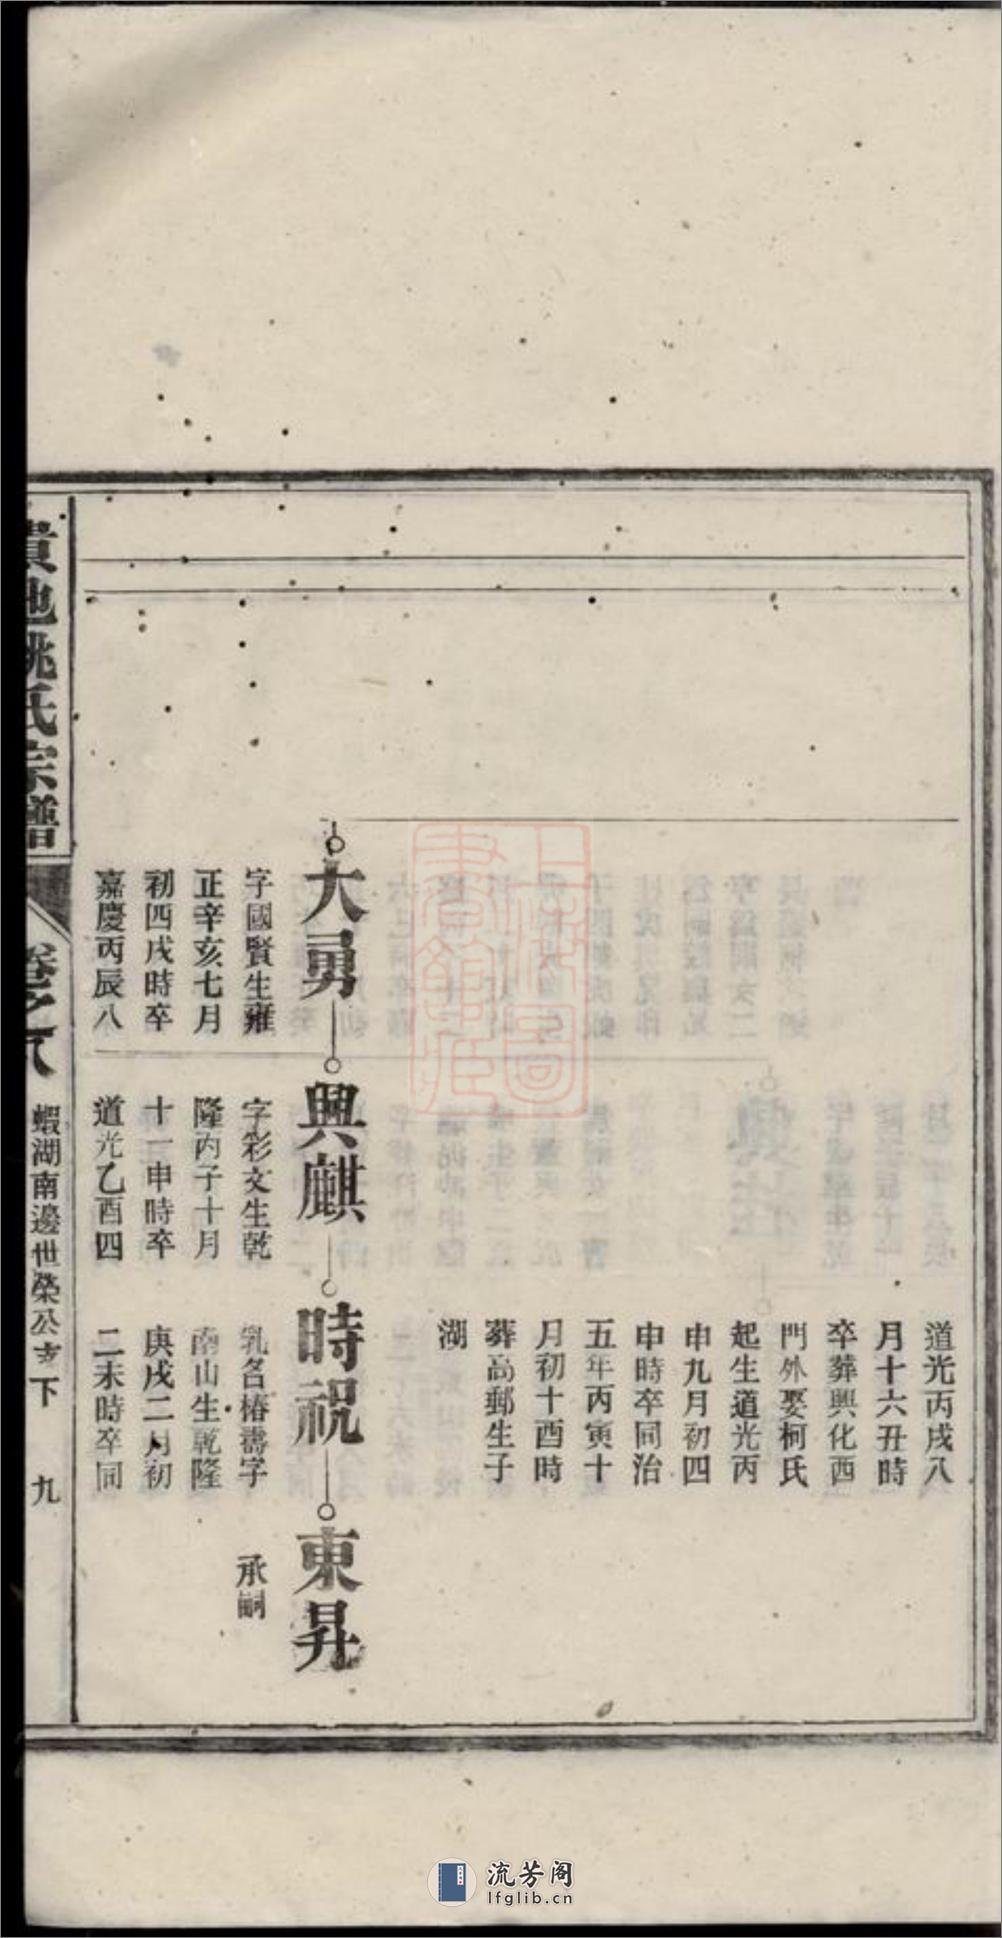 道光丙戌八
月十六丑時
卒葬興化西
門外娶柯氏
起生道光丙
申九月初四
申時卒同治
五年丙寅十
月初十酉時
葬高郵生子
湖
大勇
字國賢生雍
正辛亥七月
初四戌時卒
嘉慶丙辰八
興麒
字彩文生乾
隆丙子十月
十一申時卒
道光乙酉四
時祝
乳名椿壽字
南山生乾隆
庚戌二月初
二未時卒同
東昇
承嗣
貴池姚氏宗譜
卷之八
蝦湖南邊世榮公支下
九
流芳阁
lfglib.cn